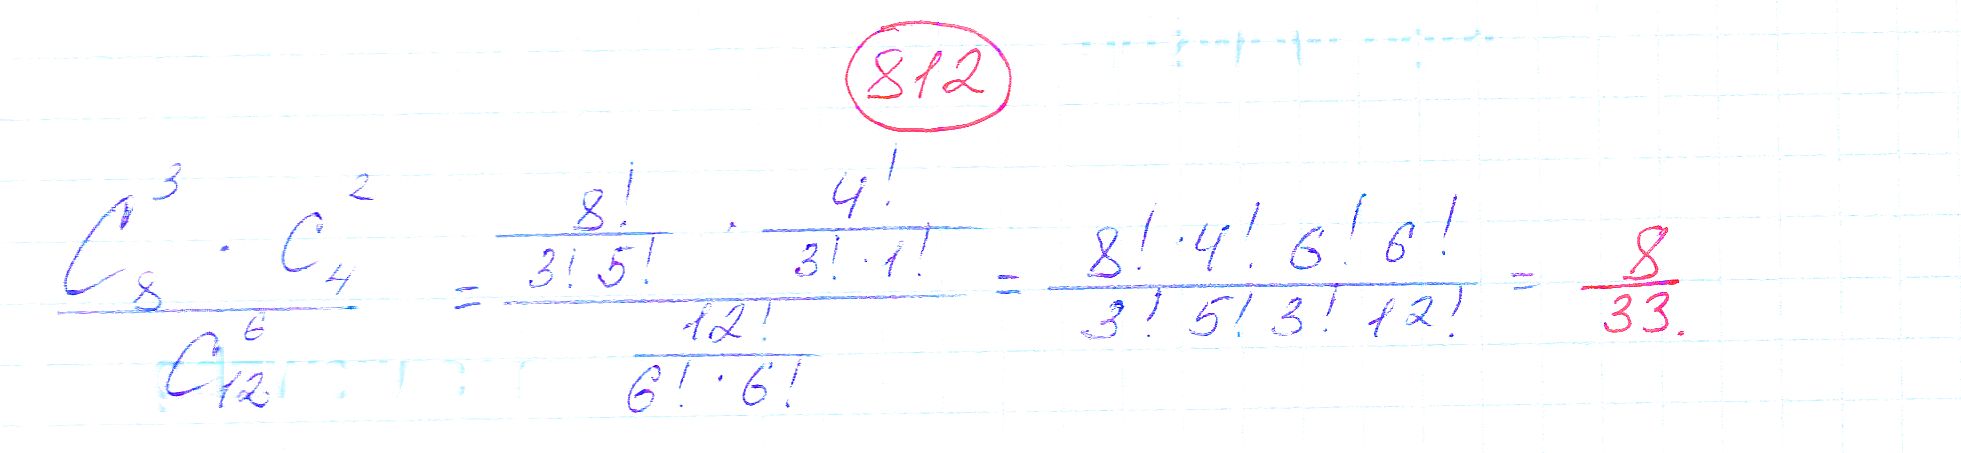 812
C_8^3 · C_4^2 / C_12^6 = (8! / 3! 5! · 4! / 3! · 1!) / (12! / 6! · 6!) = 8! · 4! 6! 6! / 3! 5! 3! 12! = 8 / 33.